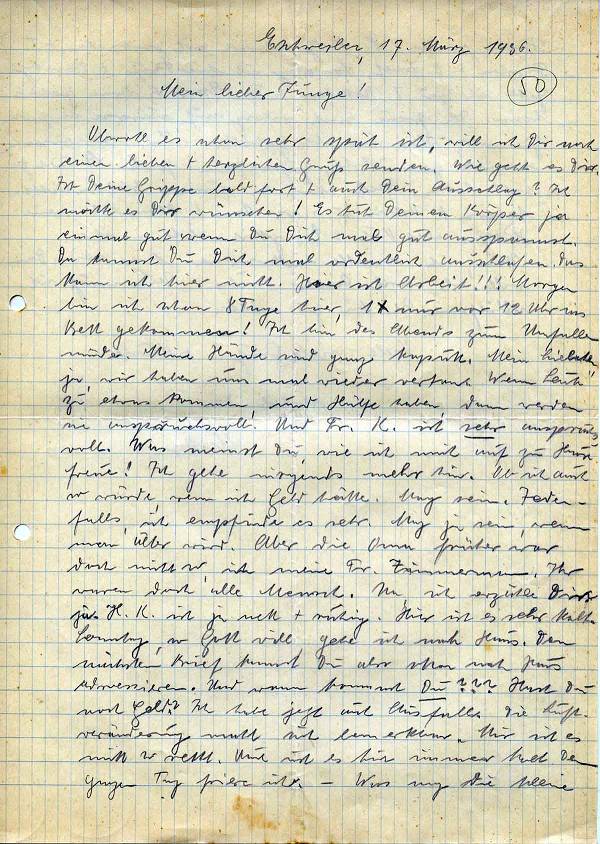 Eschweiler, 17. März 1936.
50
Mein lieber Junge!
Obwohl es schon sehr spät ist, will ich Dir noch
einen lieben + herzlichen Gruß senden. Wie geht es Dir.
Ist Deine Grippe bald fort + auch Dein Ausschlag? Ich
möchte es Dir wünschen! Es tut Deinem Körper ja
einmal gut wenn Du Dich mal gut ausspannst.
Da kannst Du Dich mal ordentlich ausschlafen. Das
kann ich hier nicht. Hier ist Arbeit!!! Morgen
bin ich schon 8 Tage hier, 1 x nur vor 12 Uhr ins
Bett gekommen! Ich bin des Abends zum Umfallen
müde. Meine Hände sind ganz kaputt. Mein Liebster,
ja, wir haben uns mal wieder vertan. Wenn Leute
zu etwas kommen, und Hülfe haben, dann werden
sie anspruchsvoll. Und Fr. K. ist sehr anspruchs-
voll. Was meinst Du, wie ich mich auf zu Haus
freue! Ich gehe nirgends mehr hin. Ob ich auch
so würde, wenn ich Geld hätte. Mag sein. Jeden-
falls, ich empfinde es sehr. Mag ja sein, wenn
man älter wird. Aber die Oma früher war
doch nicht so, ich meine Fr. Zimmermann. Ihr
waren doch alle Mensch. Na, ich erzähle Dir
ja. H. K. ist ja nett + ruhig. Hier ist es sehr kalt.
Sonntag, so Gott will gehe ich nach Haus. Den
nächsten Brief kannst Du also schon nach Haus
adressieren. Und wann kommst Du??? Hast Du
noch Geld? Ich habe jetzt auch Ausfluß. Die Luft-
veränderung macht sich bemerkbar. Mir ist es
nicht so recht. Und ist es hier immer kalt. Den
ganzen Tag friere ich. — Was mag die kleine